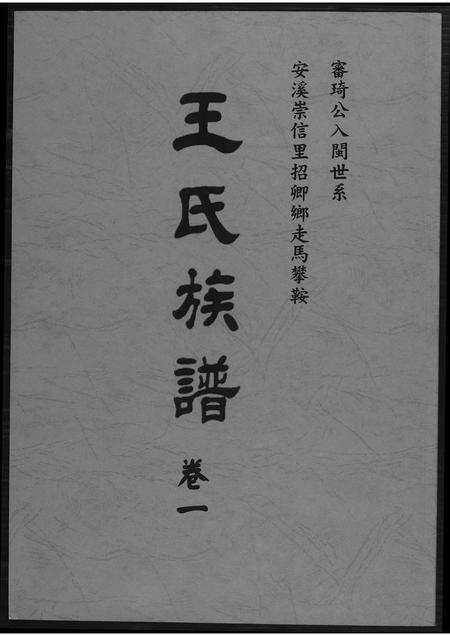 審琦公入閩世系
安溪崇信里招卿鄉走馬攀鞍
王氏族譜
卷一